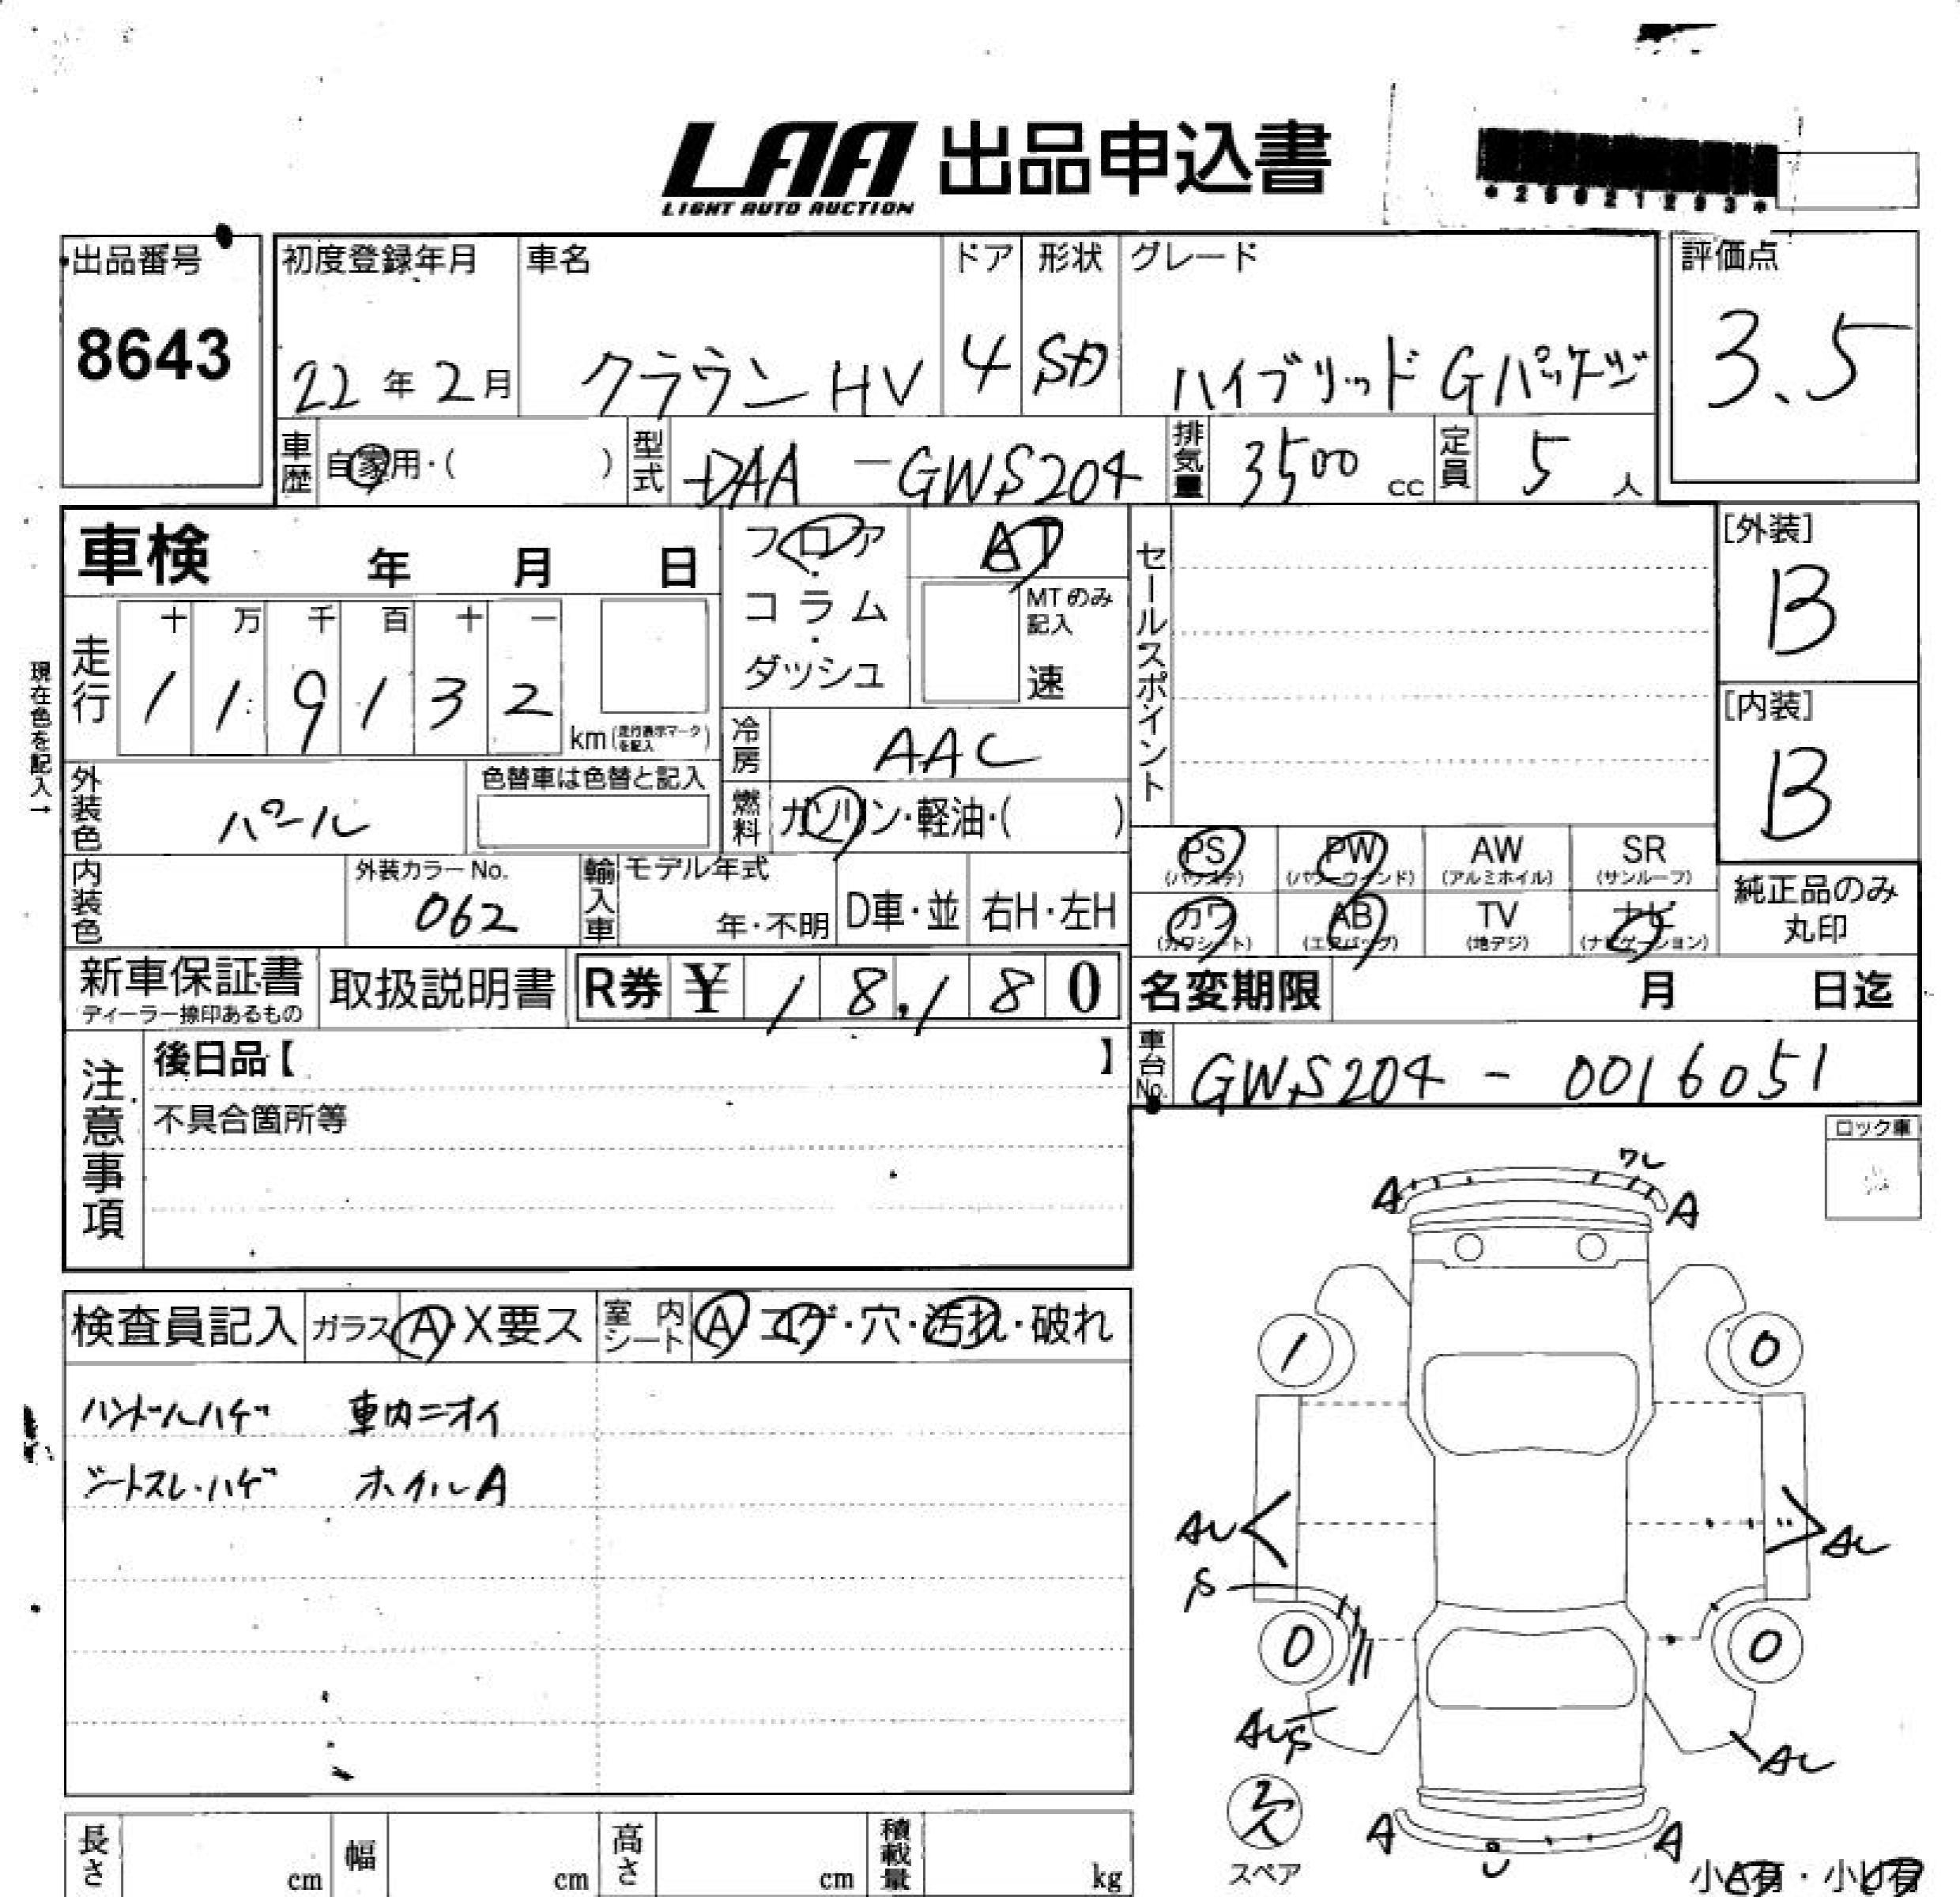 LAA 出品申込書
LIGHT AUTO AUCTION
*26021293*
出品番号
8643
初度登録年月 車名 ドア 形状 グレード
22年2月 クラウンHV 4 SD ハイブリッドGパッケージ
評価点
3.5
車歴 自家用・( ) 型式 DAA-GWS204 排気量 3500cc 定員 5人
車検 年 月 日
フロア・コラム・ダッシュ
AT
MTのみ記入
速
セールスポイント
[外装]
B
[内装]
B
現在色を記入→
走行 十 万 千 百 十 一
1 1 9 1 3 2
km(走行表示マークを記入)
冷房 AAC
外装色 パール
色替車は色替と記入
燃料 ガソリン・軽油・( )
PS PW AW SR
(パワステ) (パワーウィンド) (アルミホイル) (サンルーフ)
カワ AB TV ナビ
(カワシート) (エアバッグ) (地デジ) (ナビゲーション)
純正品のみ
丸印
内装色 外装カラーNo.
062
輸入車 モデル年式
年・不明 D車・並 右H・左H
新車保証書
ディーラー捺印あるもの
取扱説明書 R券 ¥ 18,180
名変期限 月 日迄
車台No. GWS204-0016051
注意事項
後日品【 】
不具合箇所等
ロック車
検査員記入 ガラス A・X要ス 室内シート A コゲ・穴・汚れ・破れ
ハンドルハゲ 車内ニオイ
シートスレ・ハゲ ホイルA
ワレ
A A
1 0
AU AU
S
0 0
AUS AU
欠
スペア
A A
U
小A有・小U有
長さ cm 幅 cm 高さ cm 積載量 kg